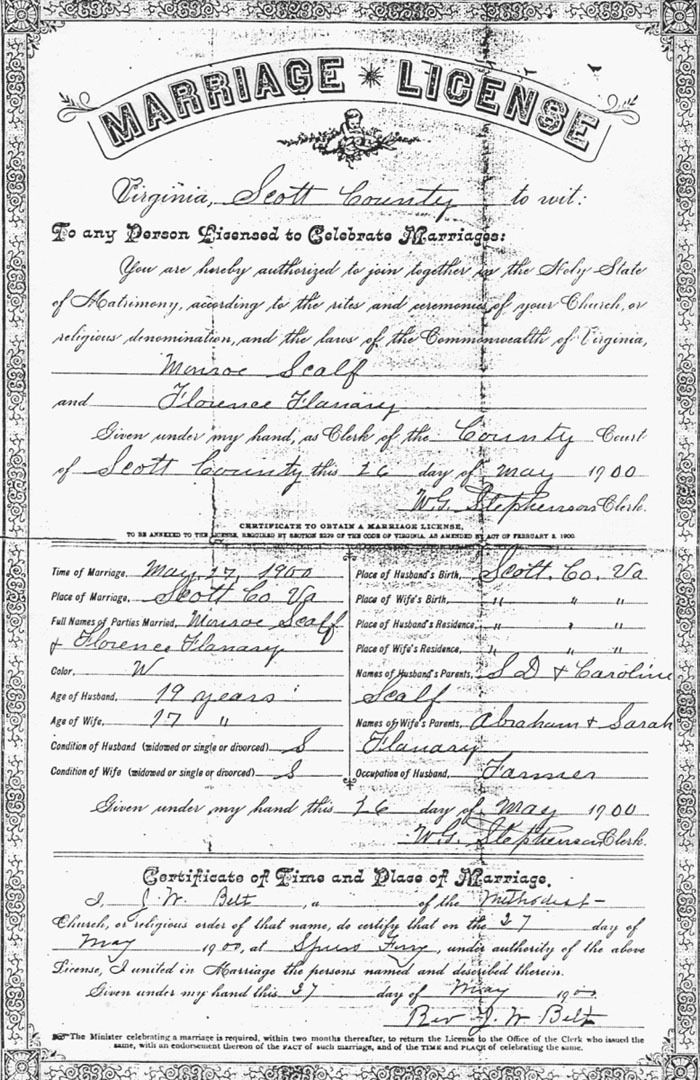 MARRIAGE * LICENSE
Virginia, Scott County to wit:
To any Person Licensed to Celebrate Marriages:
You are hereby authorized to join together in the Holy State
of Matrimony, according to the rites and ceremonies of your Church, or
religious denomination, and the laws of the Commonwealth of Virginia,
Monroe Scalf
and Florence Flanary
Given under my hand, as Clerk of the County Court
of Scott County this 26 day of May 1900
W.G. Stephenson Clerk.
CERTIFICATE TO OBTAIN A MARRIAGE LICENSE,
TO BE ANNEXED TO THE LICENSE, REQUIRED BY SECTION 2229 OF THE CODE OF VIRGINIA, AS AMENDED BY ACT OF FEBRUARY 3, 1900.
Time of Marriage, May, 27, 1900
Place of Marriage, Scott Co Va
Full Names of Parties Married, Monroe Scalf
& Florence Flanary
Color, W
Age of Husband, 19 years
Age of Wife, 17 "
Condition of Husband (widowed or single or divorced) S
Condition of Wife (widowed or single or divorced) S
Place of Husband's Birth, Scott. Co. Va
Place of Wife's Birth, " " "
Place of Husband's Residence, " " "
Place of Wife's Residence, " " "
Names of Husband's Parents, S D & Caroline
Scalf
Names of Wife's Parents, Abraham & Sarah
Flanary
Occupation of Husband, Farmer
Given under my hand this 26 day of May 1900
W.G. Stephenson Clerk.
Certificate of Time and Place of Marriage.
I, J. W. Belt, a of the Methodist
Church, or religious order of that name, do certify that on the 27 day of
May 1900, at Ferry, under authority of the above
License, I united in Marriage the persons named and described therein.
Given under my hand this 27 day of May 1900
Rev J. W Belt
The Minister celebrating a marriage is required, within two months thereafter, to return the License to the Office of the Clerk who issued the
same, with an endorsement thereon of the FACT of such marriage, and of the TIME and PLACE of celebrating the same.